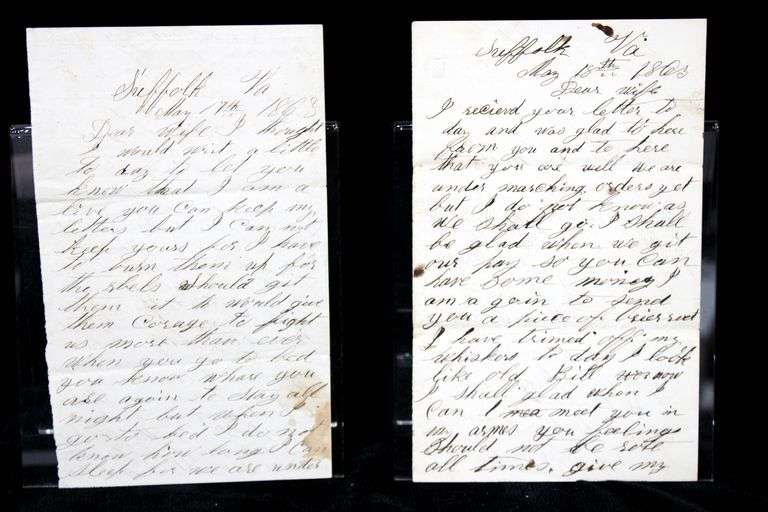 Suffolk Va
May 17th 1863
Dear Wife I thought
I would writ a little
to day to let you
know that I am a
live you can keep my
letters but I can not
keep yours for I have
to burn them up for
the rbels should git
them it would give
them corage to fight
us more than ever
when you go to bed
you know whare you
are again to stay all
night but when I
go to bed I do not
know how long I can
sleep for we are under
Suffolk Va
May 18th 1863
Dear wife
I recierd your letter to
day and was glad to here
from you and to here
that you are well we are
under marching orders yet
but I do not know as
we shall go. I shall
be glad when we git
our pay so you can
have some money I
am a goin to send
you a piece of
I have trimed off my
whiskers to day I look
like old Bill
I shall glad when I
can I meet you in
my armes you feelings
should not be
all times. give my